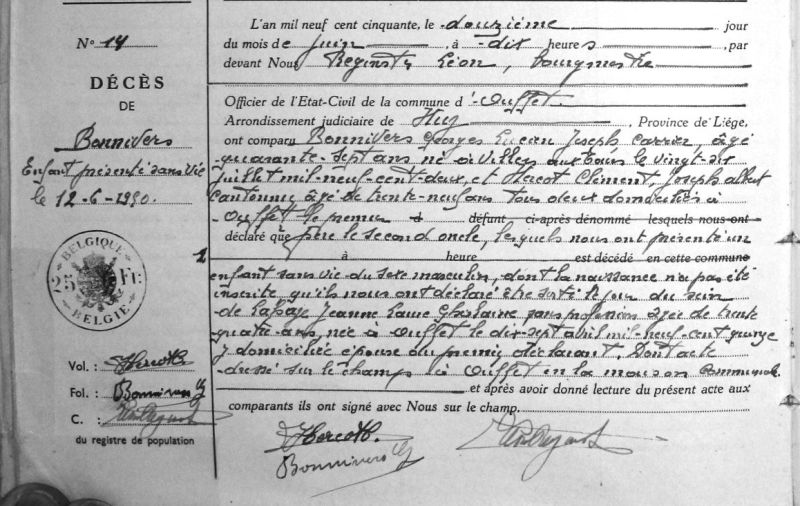 N° 14
DÉCÈS
DE
Bonnivers
Enfant présenté sans vie
le 12-6-1950.
BELGIQUE
25 Fr.
BELGIE
Vol. : Hercot
Fol. : Bonnivers G
C. :
du registre de population
L'an mil neuf cent cinquante, le douzième jour
du mois de juin, à dix heures, par
devant Nous Reginster Léon, bourgmestre
Officier de l'Etat-Civil de la commune d'Ouffet
Arrondissement judiciaire de Huy, Province de Liége,
ont comparu Bonnivers Georges Lucien Joseph carrier, âgé
quarante-sept ans né à Villers aux Tours le vingt-six
juillet mil-neuf-cent-deux, et Hercot Clément, Joseph albert
Cantonnier âgé de trente-neuf ans tous deux domiciliés à
Ouffet le premier défunt, ci-après dénommé lesquels nous ont
déclaré que père le second oncle, lesquels nous ont présenté un
à heure est décédé en cette commune
enfant sans vie du sexe masculin, dont la naissance n'a pas été
inscrite qu'ils nous ont déclaré être sorti le jour du sein
de Jeanne Laure Ghislaine sans profession agée de trente
quatre ans, née à Ouffet le dix-sept avril mil-neuf-cent quinze
y domiciliée épouse du premier déclarant. Dont acte
dressé sur le champ à Ouffet en la maison communale
et après avoir donné lecture du présent acte aux
comparants ils ont signé avec Nous sur le champ.
Hercot
Bonnivers G